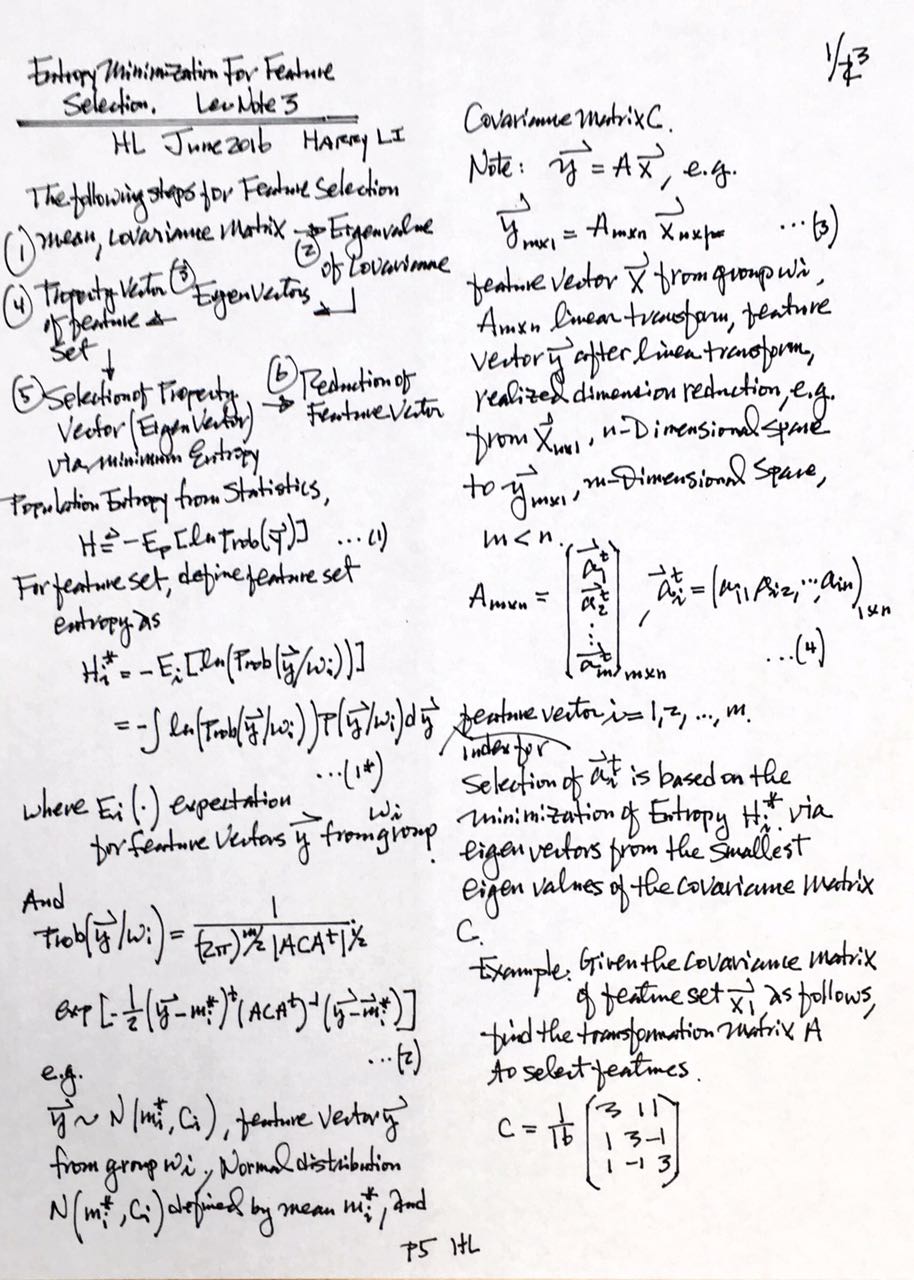 Entropy Minimization For Feature
Selection. Lec Note 3
HL June 2016 HARRY LI
The following steps for Feature Selection
(1) mean, Covariance Matrix → (2) Eigenvalue
of Covariance
(3) EigenVectors
(4) Property Vector
of feature
Set
(5) Selection of Property
Vector (EigenVector)
via minimum Entropy
→ (6) Reduction of
Feature Vector
Population Entropy from Statistics,
H ≜ -E_p [ln Prob(y⃗)] ...(1)
For feature set, define feature set
entropy as
H_i^* = -E_i [ln(Prob(y⃗/w_i))]
= -∫ ln(Prob(y⃗/w_i)) P(y⃗/w_i) dy⃗
...(1*)
where E_i(·) expectation
for feature Vectors y⃗ from group w_i
And
Prob(y⃗/w_i) = 1 / ((2π)^{m/2} |ACA^t|^{1/2})
exp[-1/2 (y⃗-m_i^*)^t (ACA^t)^{-1} (y⃗-m⃗_i^*)]
...(2)
e.g.
y⃗ ~ N(m_i^*, C_i), feature Vector y⃗
from group w_i, Normal distribution
N(m_i^*, C_i) defined by mean m_i^*, and
Covariance matrix C.
Note: y⃗ = A x⃗, e.g.
y⃗_{mx1} = A_{mxn} x⃗_{nx1} ...(3)
feature vector x⃗ from group w_i,
A_{mxn} linear transform, feature
vector y⃗ after linea transform,
realized dimension reduction, e.g.
from x⃗_{nx1}, n-Dimensional space
to y⃗_{mx1}, m-Dimensional Space,
m < n.
A_{mxn} = (a⃗_1^t a⃗_2^t ⋮ a⃗_m^t)_{mxn}, a⃗_i^t = (a_{i1}, a_{i2}, ..., a_{in})_{1xn}
...(4)
feature vector i = 1, 2, ..., m.
index for
Selection of a⃗_i^t is based on the
minimization of Entropy H_i^* via
eigen vectors from the smallest
eigen values of the covariance matrix
C.
Example. Given the covariance matrix
of feature set x⃗_i, as follows,
find the transformation matrix A
to select features.
C = 1/16 (3 1 1
1 3 -1
1 -1 3)
P5 HL